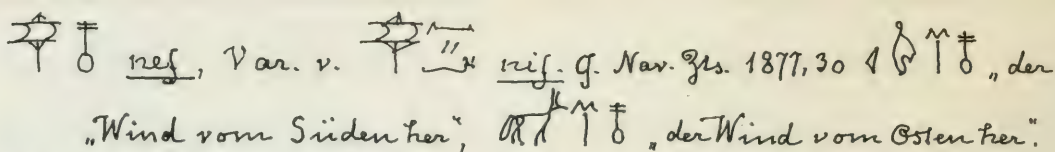 nef, Var. v. nif. G. Nav. Zts. 1877, 30 „der
„Wind vom Süden her“, „der Wind vom Osten her“.